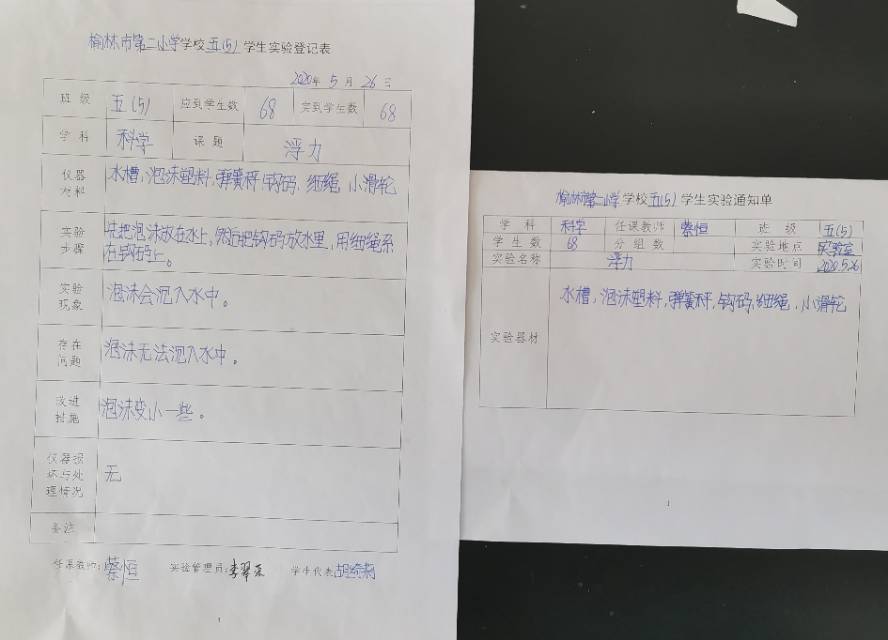 榆林市第二小学学校五(5)学生实验登记表
2020年5月26
班级 五(5) 应到学生数 68 实到学生数 68
学科 科学 课题 浮力
仪器材料 水槽,泡沫塑料,弹簧秤,钩码,细绳,小滑轮
实验步骤 先把泡沫放在水上,然后把钩码放水里,用细绳系
在钩码上。
实验现象 泡沫会沉入水中。
存在问题 泡沫无法沉入水中。
改进措施 泡沫变小一些。
仪器损坏与处理情况 无
备注
任课教师:蔡恒 实验管理员: 学生代表
1
榆林市第二小学学校五(5)学生实验通知单
学科 科学 任课教师 蔡恒 班级 五(5)
学生数 68 分组数 实验地点 实验室
实验名称 浮力 实验时间 2020.5.26
实验器材 水槽,泡沫塑料,弹簧秤,钩码,细绳,小滑轮
1